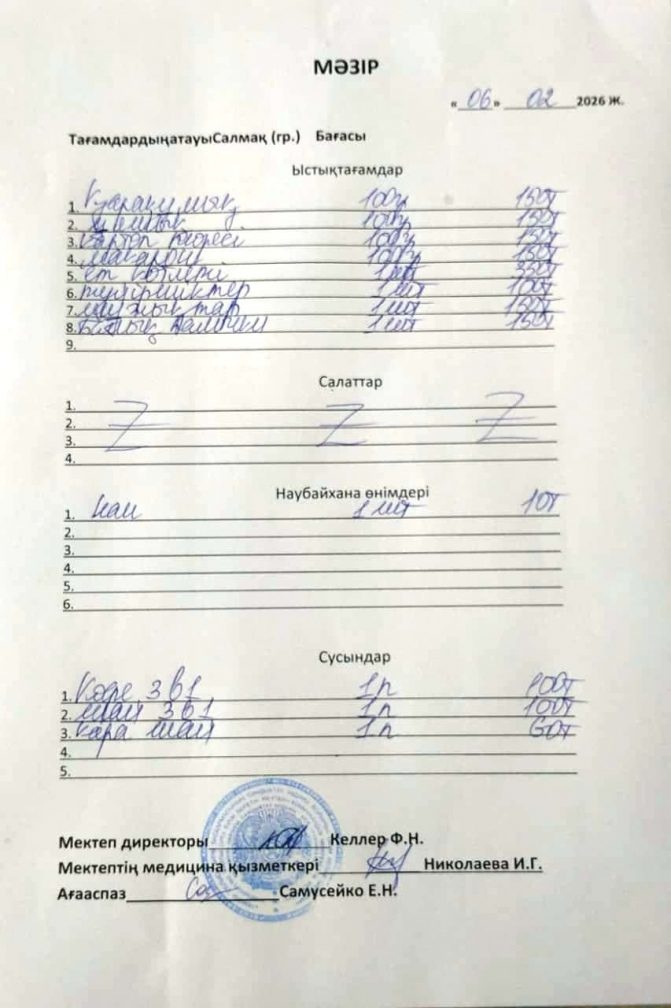 МӘЗІР
«06» 02 2026 Ж.
ТағамдардыңатауыСалмақ (гр.) Бағасы
Ыстықтағамдар
1. Қарақұмық 100гр 150т
2. 100гр 150т
3. картоп пюресі 100гр 150т
4. макарон 100гр 150т
5. ет котлеті 1шт 350т
6. түйіршіктер 1шт 100т
7. 1шт 150т
8. 1шт 150т
9.
Салаттар
1.
2. Z Z Z
3.
4.
Наубайхана өнімдері
1. нан 1 шт 10т
2.
3.
4.
5.
6.
Сусындар
1. Кофе 3в1 1п 100т
2. шай 3в1 1п 100т
3. қара шай 1п 60т
4.
5.
Мектеп директоры Келлер Ф.Н.
Мектептің медицина қызметкері Николаева И.Г.
Ағааспаз Самусейко Е.Н.